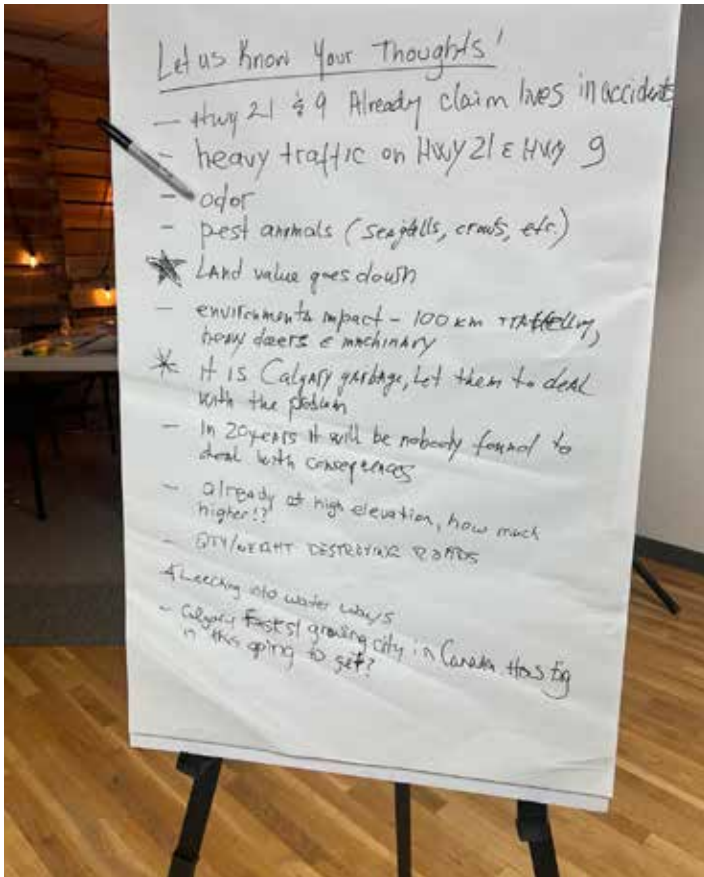 Let us Know Your Thoughts!
- Hwy 21 & 9 Already claim lives in accidents
- heavy traffic on HWY 21 & HWY 9
- odor
- pest animals (seagalls, crows, etc.)
LAnd value goes down
- environmenta impact - 100 km
heavy & machinary
It is Calgary garbage, Let them to deal
with the
- In 20 years it will be nobody found to
deal with consequences
- already at high elevation, how much
higher!?
- QTY/WEIGHT DESTROYING ROADS
Leeching into water ways
- Calgary fastest growing city in Canada. How big
is this going to get?